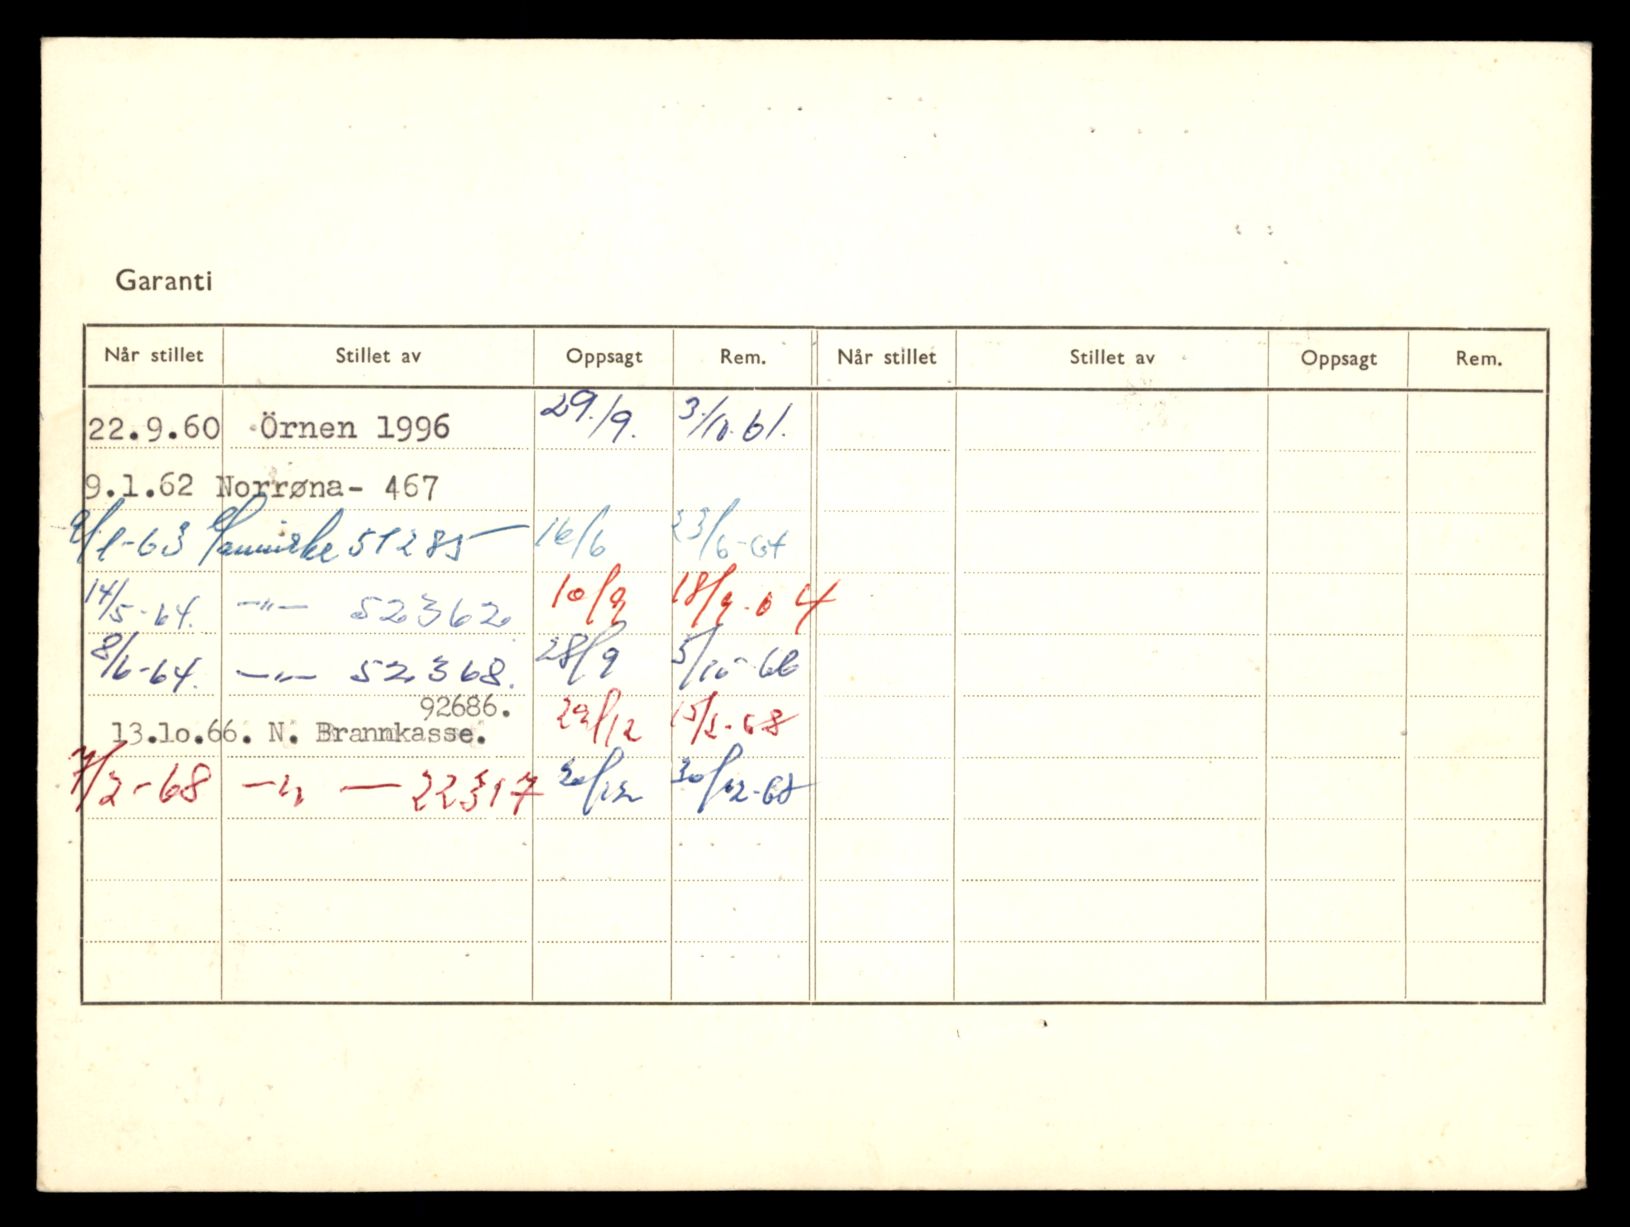 Garanti
Når stillet Stillet av Oppsagt Rem. Når stillet Stillet av Oppsagt Rem.
22.9.60 Örnen 1996 29./9. 3./10.61.
9.1.62 Norrøna- 467
9/1-63 51285 16/6 23/6-64
14/5-64. -"- 52362. 10/9 18/9-64
8/6-64. -"- 52368. 28/9 5/10-66
92686.
13.10.66. N. Brannkasse. 29/12 15/2-68
7/2-68 -"- 22317 20/12 30/12-68